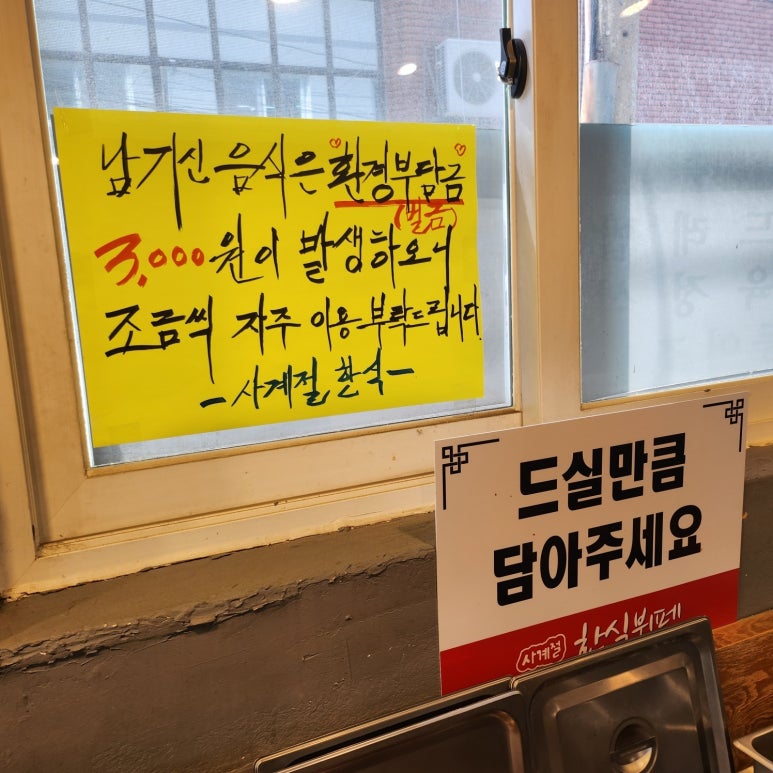 남기신 음식은 환경부담금
(벌금)
3,000원이 발생하오니
조금씩 자주 이용 부탁드립니다
-사계절 한식-
드실만큼
담아주세요
사계절 한식뷔페